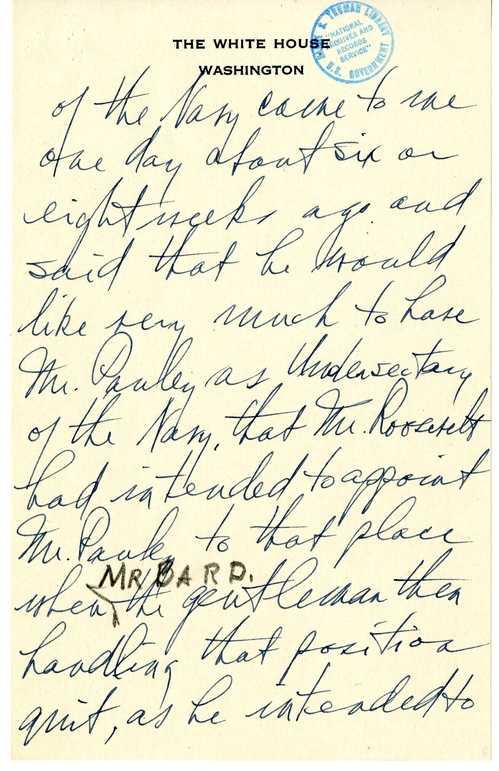 THE WHITE HOUSE
WASHINGTON
HARRY S. TRUMAN LIBRARY
"NATIONAL
ARCHIVES AND
RECORDS
SERVICE"
U.S. GOVERNMENT
of the Navy came to me
one day about six or
eight weeks ago and
said that he would
like very much to have
Mr. Pauley as Undersectary
of the Navy, that Mr. Roosevelt
had intended to appoint
Mr. Pauley to that place
MR BARD.
when the gentleman then
handling that position
quit, as he intended to